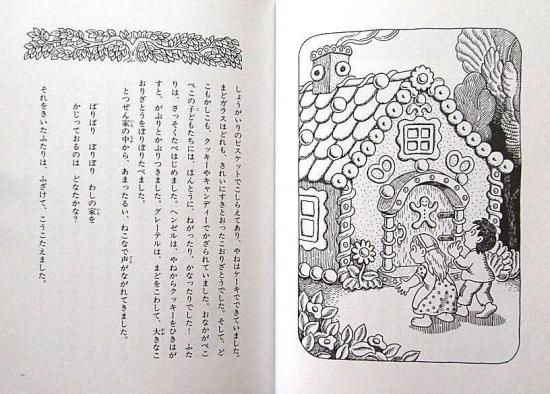 しょうがいりのビスケットでこしらえてあり、やねはケーキでできていました。
まどガラスはとれも、きれいにすきとおったこおりざとうでした。そして、ど
こもかしこも、クッキーやキャンディーでかざられていました。おなかがぺこ
ぺこの子どもたちには、ほんとうに、ねがったり、かなったりでした！　ふた
りは、さっそくたべはじめました。ヘンゼルは、やねからクッキーをひきはが
すと、がぶりとかぶりつきました。グレーテルは、まどをこわして、大きなこ
おりざとうをぽりぽりたべました。
とつぜん家の中から、あまったるい、ねこなで声がながれてきました。
ぱりぱり　ぽりぽり　わしの家を
かじっておるのは　どなたかな？
それをきいたふたりは、ふざけて、こうこたえました。